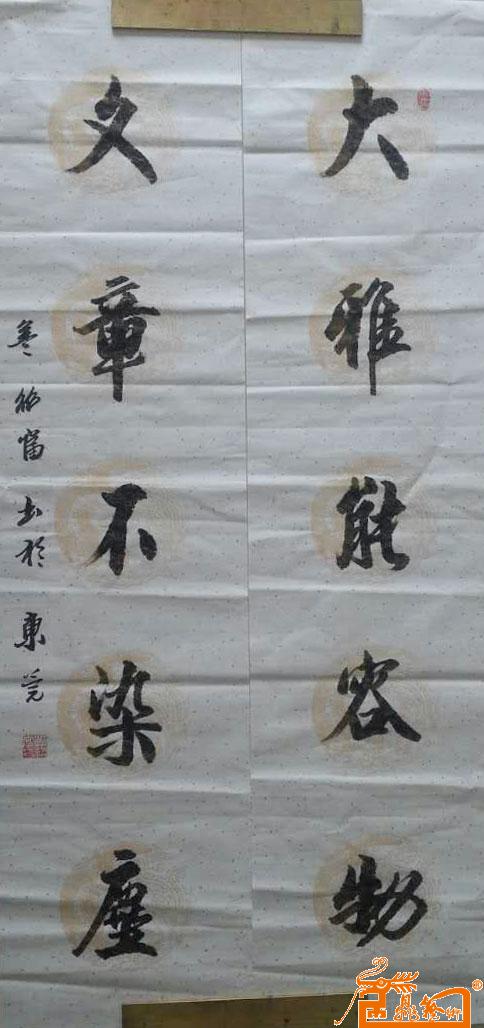 大雅能容物
文章不染塵
書於東莞